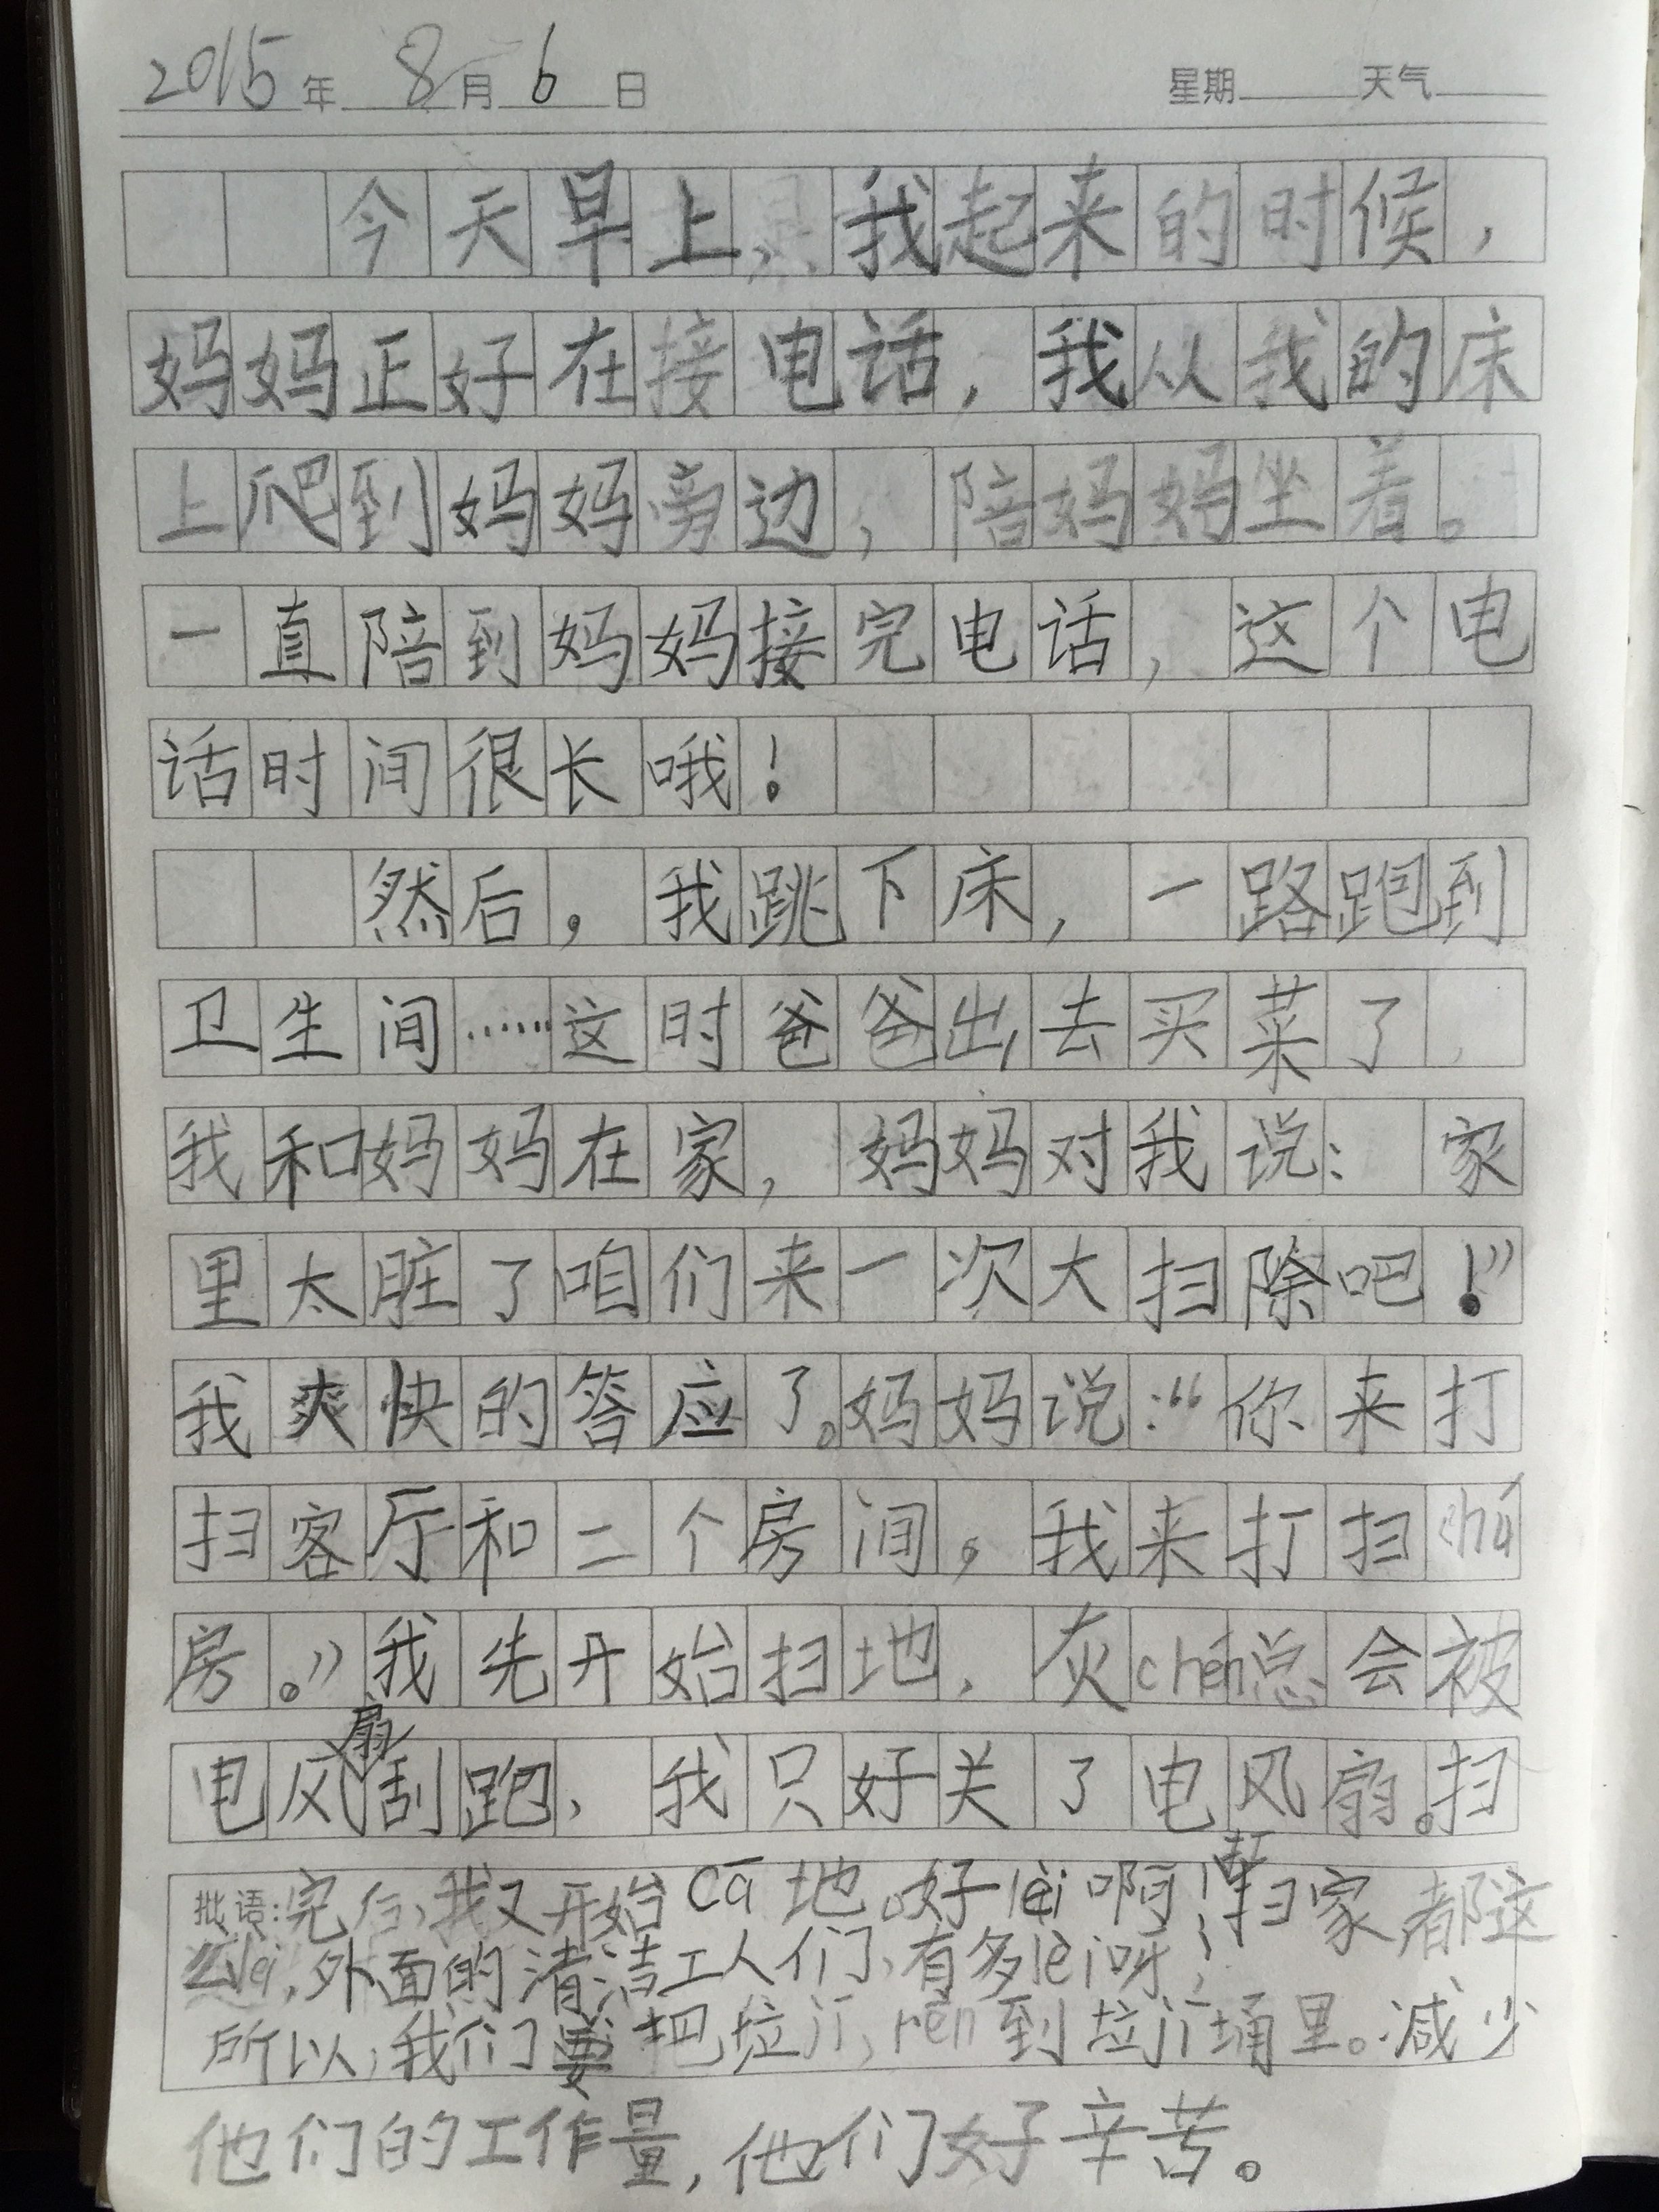 2015年 8月 6日 星期 天气
今天早上，我起来的时候，
妈妈正好在接电话，我从我的床
上爬到妈妈旁边，陪妈妈坐着。
一直陪到妈妈接完电话，这个电
话时间很长哦！
然后，我跳下床，一路跑到
卫生间……这时爸爸出去买菜了，
我和妈妈在家，妈妈对我说：家
里太脏了咱们来一次大扫除吧！”
我爽快的答应了。妈妈说：“你来打
扫客厅和二个房间，我来打扫chú
房。”我先开始扫地，灰chén总会被
电风扇刮跑，我只好关了电风扇。扫
批语：完后，我又开始cā地。好lèi啊！扫家都这
么lèi，外面的清洁工人们，有多lèi呀！
所以，我们要把垃jī，rēn到垃jī埇里。减少
他们的工作量，他们好辛苦。